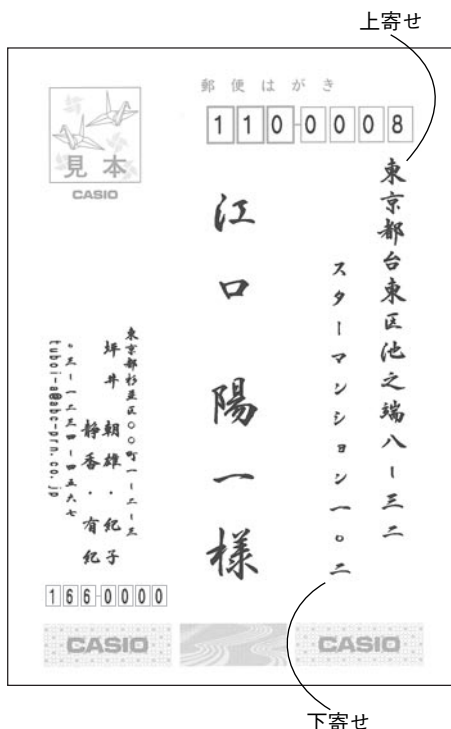 上寄せ
郵便はがき
110-0008
見本
CASIO
東京都台東区池之端八ー三二
スターマンション一〇二
江口陽一様
東京都杉並区〇〇町一ー二ー三
坪井 朝雄・紀子
静香・有紀
〇三ー一二三四ー四五六七
tuboi-a@abc-prn.co.jp
166-0000
CASIO
CASIO
下寄せ